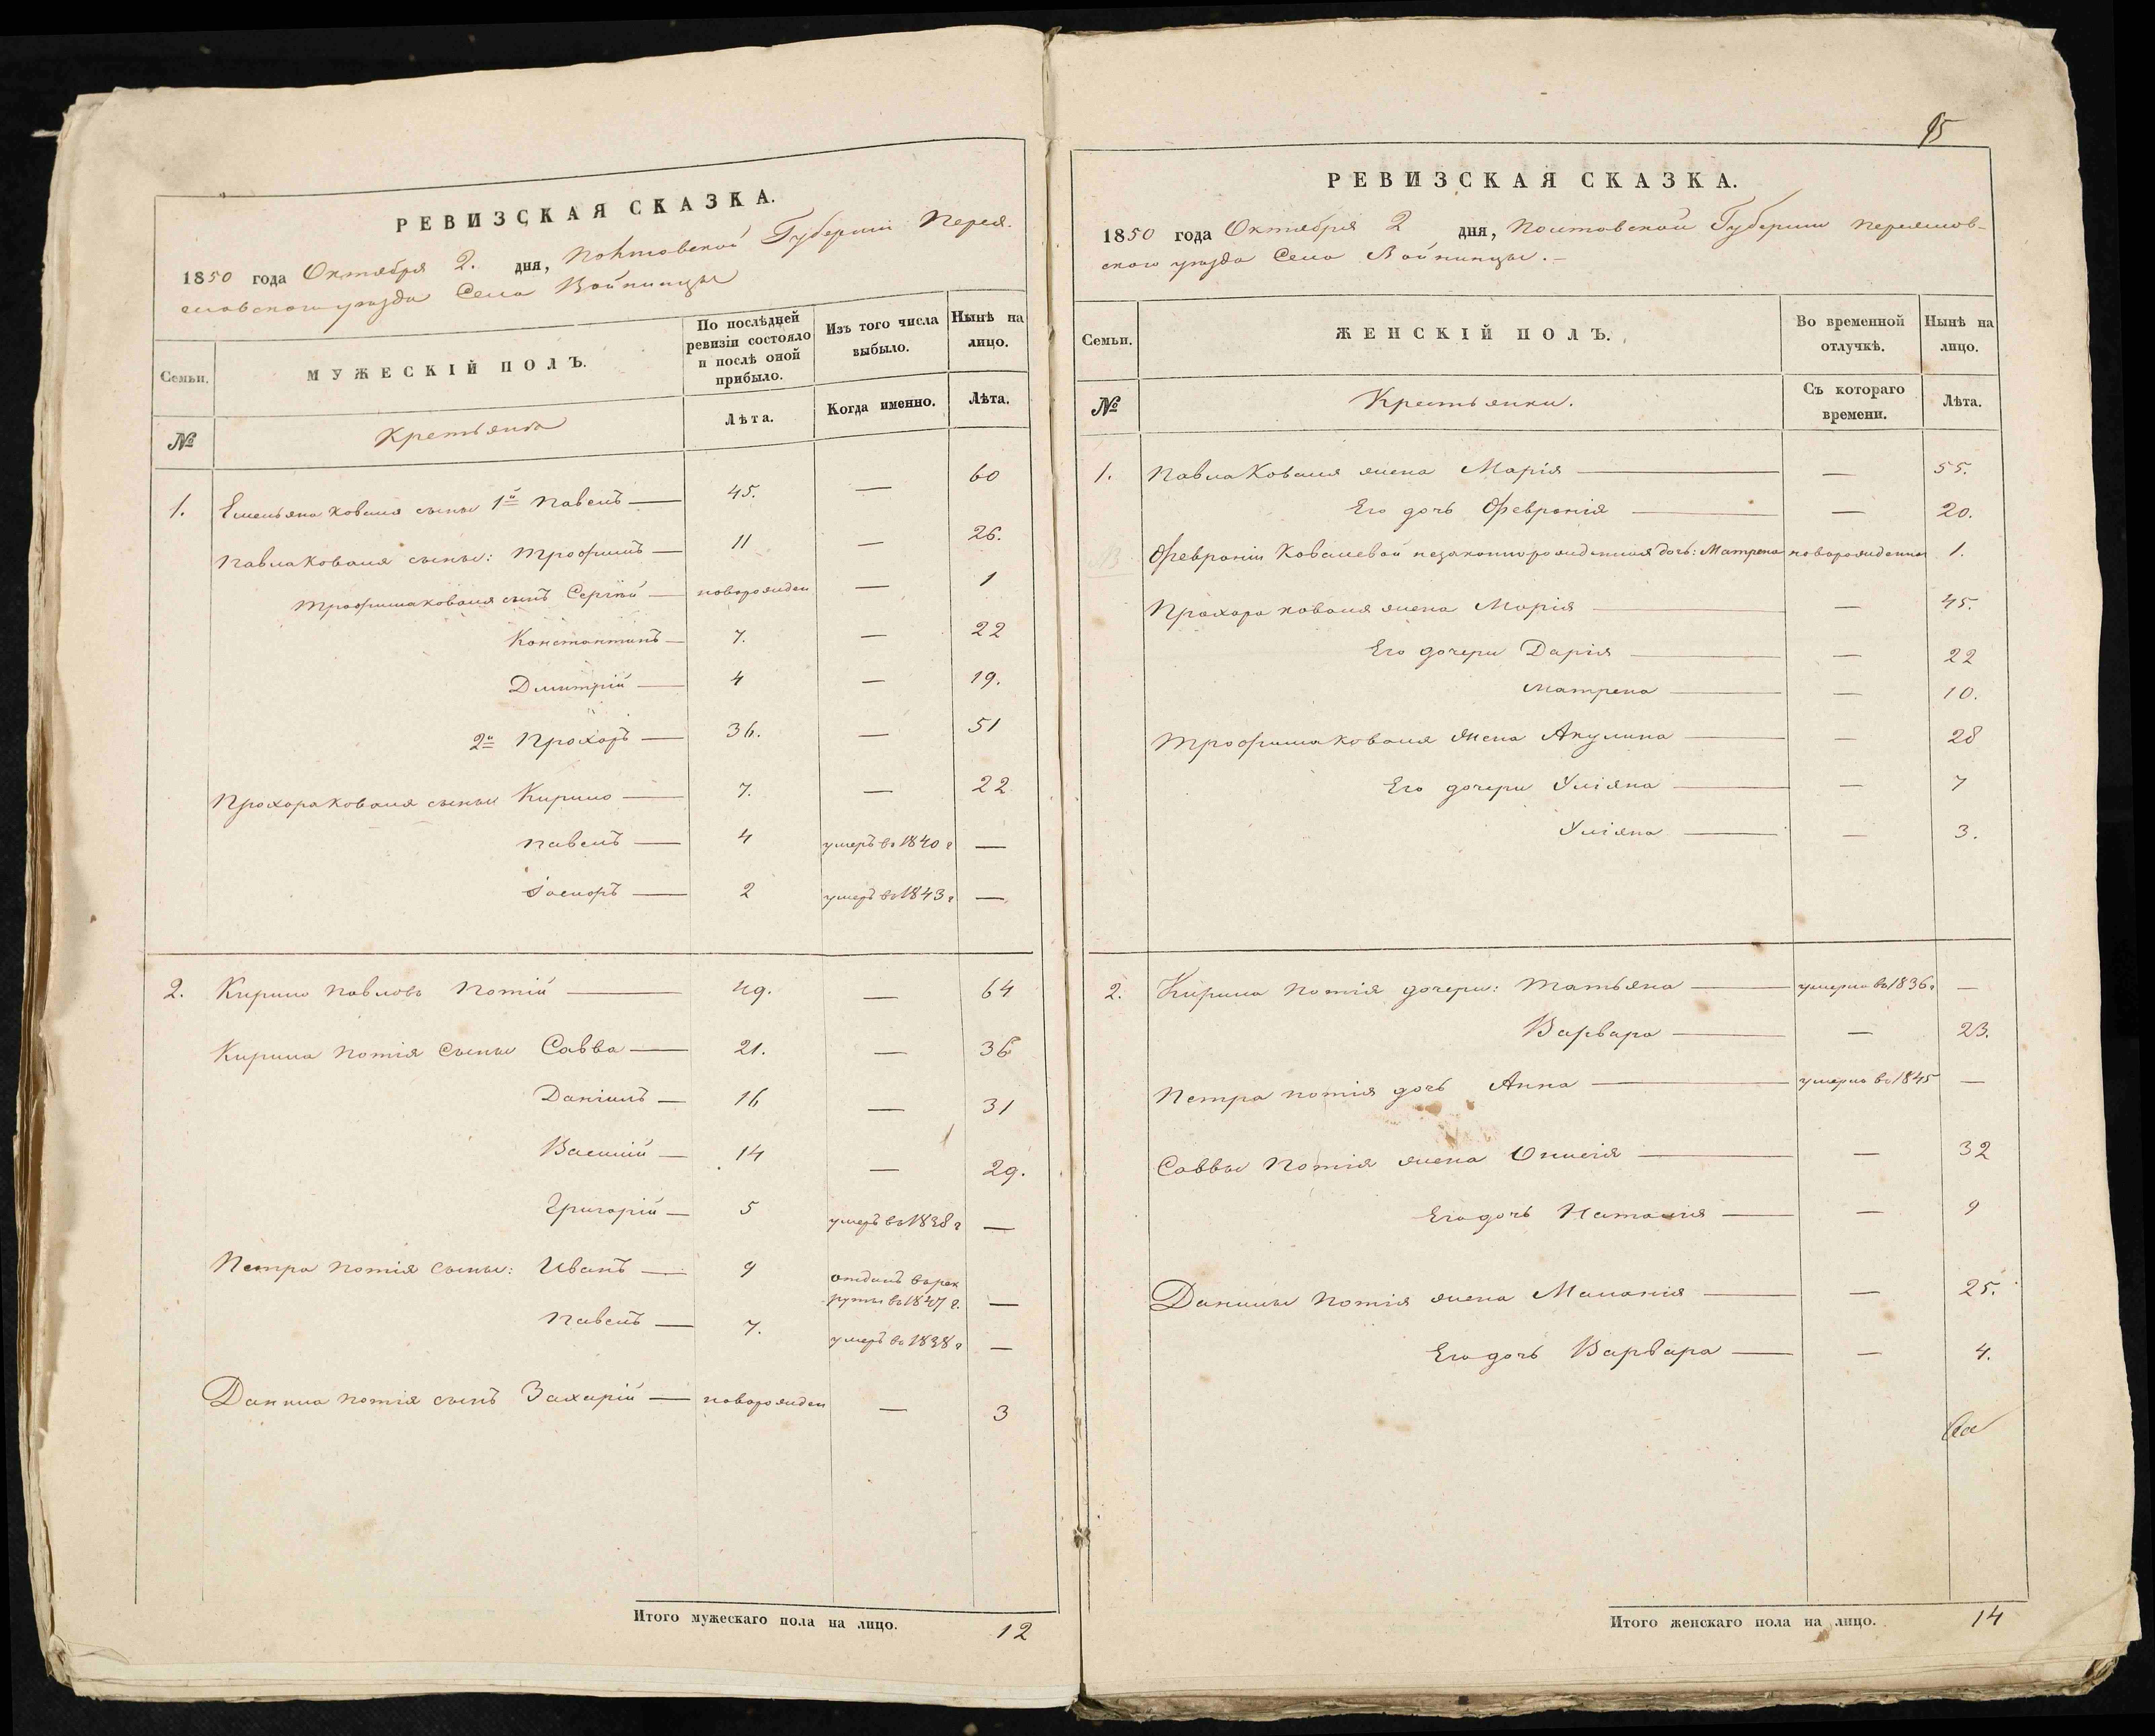 РЕВИЗСКАЯ СКАЗКА.
1850 года Октября 2. дня, Полтовской Губернии Перея-
словского уезда Села Войнинцы
Семьи.
МУЖЕСКІЙ ПОЛЪ.
По послѣдней ревизіи состояло и послѣ оной прибыло.
Изъ того числа выбыло.
Нынѣ на лицо.
№
Крестьяне
Лѣта.
Когда именно.
Лѣта.
1. Емельяна Коваля сыны 1й Павелъ — 45. — 60
Павла Коваля сыны: Трофимъ — 11 — 26.
Трофима Коваля сынъ Сергій — новорожден — 1
Константинъ — 7. — 22
Дмитрій — 4 — 19.
2й Прохоръ — 36. — 51
Прохора Коваля сыны Кирило — 7. — 22
Павелъ — 4 умеръ въ 1840 г —
2 умеръ въ 1843 г —
2. Кирило Павловъ Потій — 49. — 64
Кирила Потія Сыны Савва — 21. — 36
Даніилъ — 16 — 31
Василій — 14 — 29.
Григорій — 5 умеръ въ 1838 г —
Петра Потія Сыны: Иванъ — 9 отданъ въ рек
руты въ 1847 г. —
Павелъ — 7. умеръ въ 1838 г —
Данила Потія сынъ Захарій — новорожден — 3
Итого мужескаго пола на лицо. 12
РЕВИЗСКАЯ СКАЗКА.
1850 года Октября 2 дня, Полтовской Губернии Переяслов-
ского уезда Села Войнинцы. —
Семьи.
ЖЕНСКІЙ ПОЛЪ.
Во временной отлучкѣ.
Нынѣ на лицо.
№
Крестьянки.
Съ котораго времени.
Лѣта.
1. Павла Коваля жена Марія — — 55.
Его дочь Февронія — — 20.
Февроніи Ковалевой незаконнорожденная дочь: Матрена новорожденна 1.
Прохора Коваля жена Марія — — 45.
Его дочери Дарія — — 22
Матрена — — 10.
Трофима Коваля жена Акулина — — 28
Его дочери Уліяна — — 7
Уліяна — — 3.
2. Кирила Потія дочери: Татьяна — умерла въ 1836 г —
Варвара — — 23.
Петра Потія дочь Анна — умерла въ 1845 —
Саввы Потія жена — — 32
Его дочь Наталія — — 9
Данилы Потія жена Маланія — — 25.
Его дочь Варвара — — 4.
Итого женскаго пола на лицо. 14